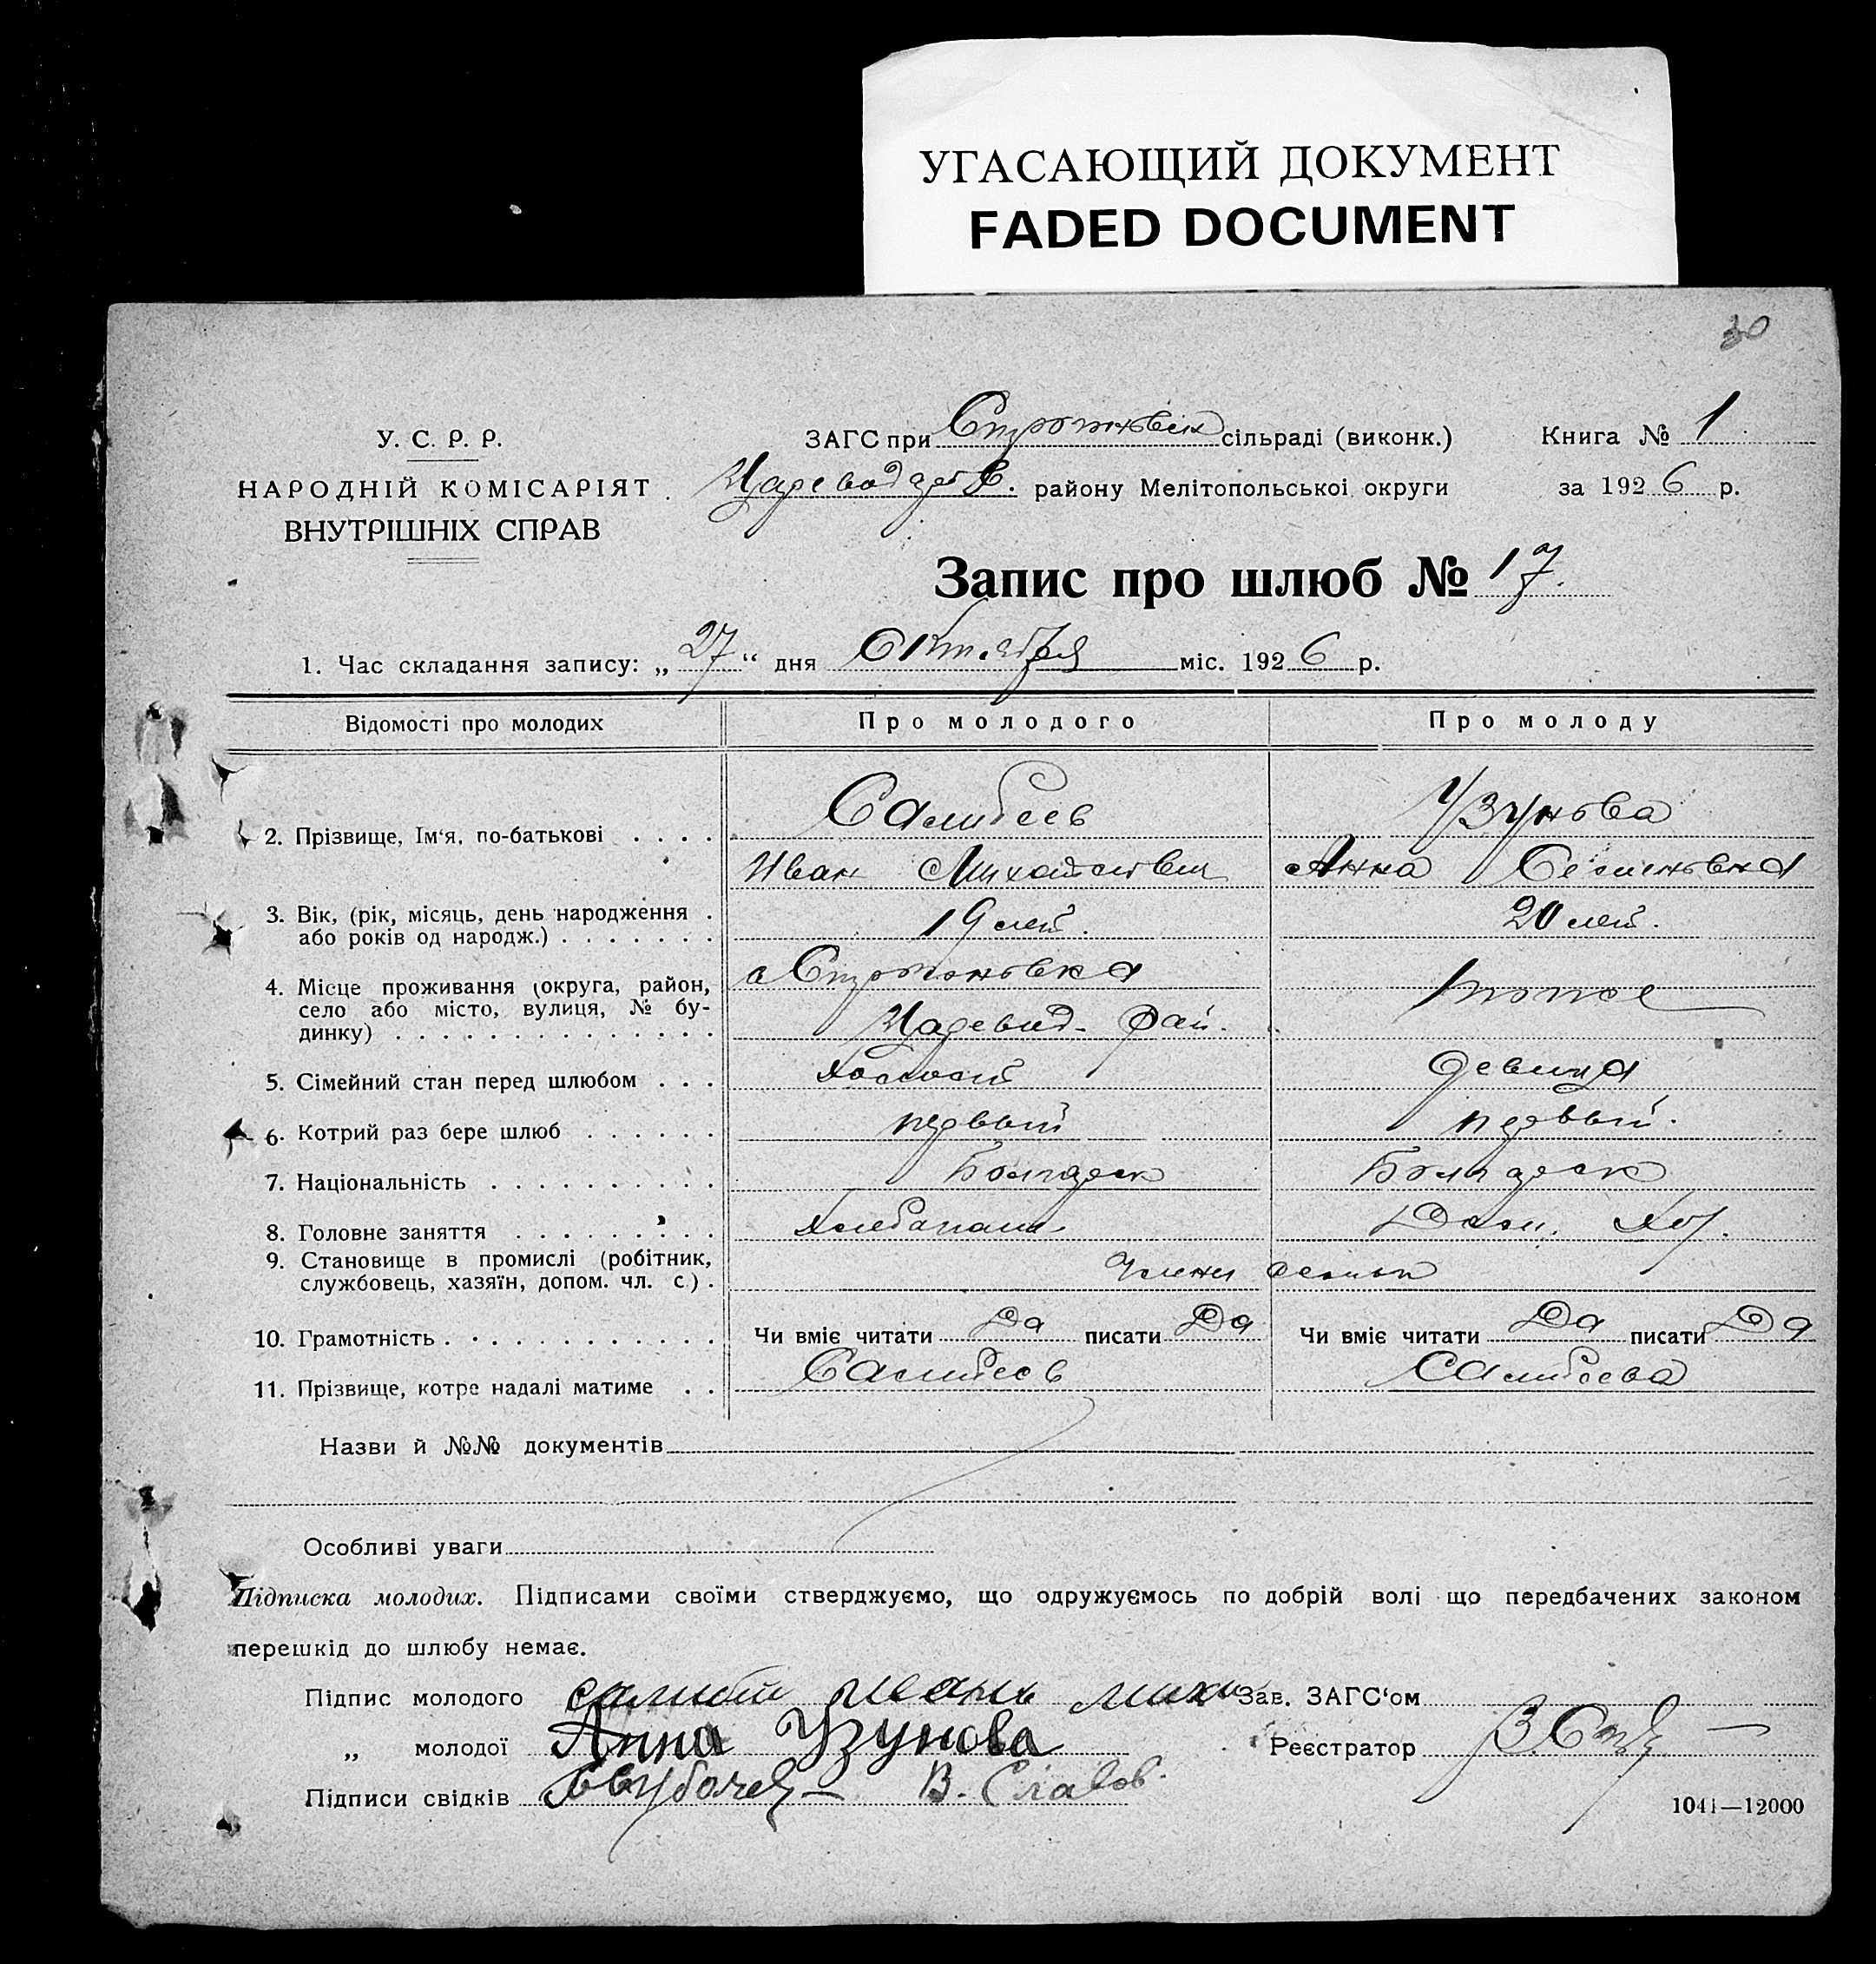 УГАСАЮЩИЙ ДОКУМЕНТ
FADED DOCUMENT
30
У. С. Р. Р.
НАРОДНІЙ КОМІСАРІЯТ
ВНУТРІШНІХ СПРАВ
ЗАГС при сільраді (виконк.)
району Мелітопольської округи
Книга № 1
за 1926 р.
Запис про шлюб № 17.
1. Час складання запису: „27“ дня Октября міс. 1926 р.
Відомості про молодих
Про молодого
Про молоду
2. Прізвище, Ім‘я, по-батькові . . . .
Салибеев
Узунова
Иван Михайлович
Анна Семеновна
3. Вік, (рік, місяць, день народження .
або років од народж.) . . . . . . .
19 лет.
20 лет.
4. Місце проживання (округа, район,
село або місто, вулиця, № бу-
динку) . . . . . . . . . . . . . .
Царевод. рай.
тоже
5. Сімейний стан перед шлюбом . . .
холост
девица
6. Котрий раз бере шлюб . . . . . .
первый
первый.
7. Національність . . . . . . . . . .
Болгарск
Болгарск
8. Головне заняття . . . . . . . . .
Хлебопаш.
Дом. Хоз.
9. Становище в промислі (робітник,
службовець, хазяїн, допом. чл. с.) .
члены семьи
10. Грамотність . . . . . . . . . . . .
Чи вміє читати Да писати Да
Чи вміє читати Да писати Да
11. Прізвище, котре надалі матиме . .
Салибеев
Салибеева
Назви й №№ документів
Особливі уваги
Підписка молодих. Підписами своїми стверджуємо, що одружуємось по добрій волі що передбачених законом
перешкід до шлюбу немає.
Підпис молодого
Зав. ЗАГС‘ом
„ молодої Анна Узунова
Реєстратор
Підписи свідків В. Славов.
1041—12000